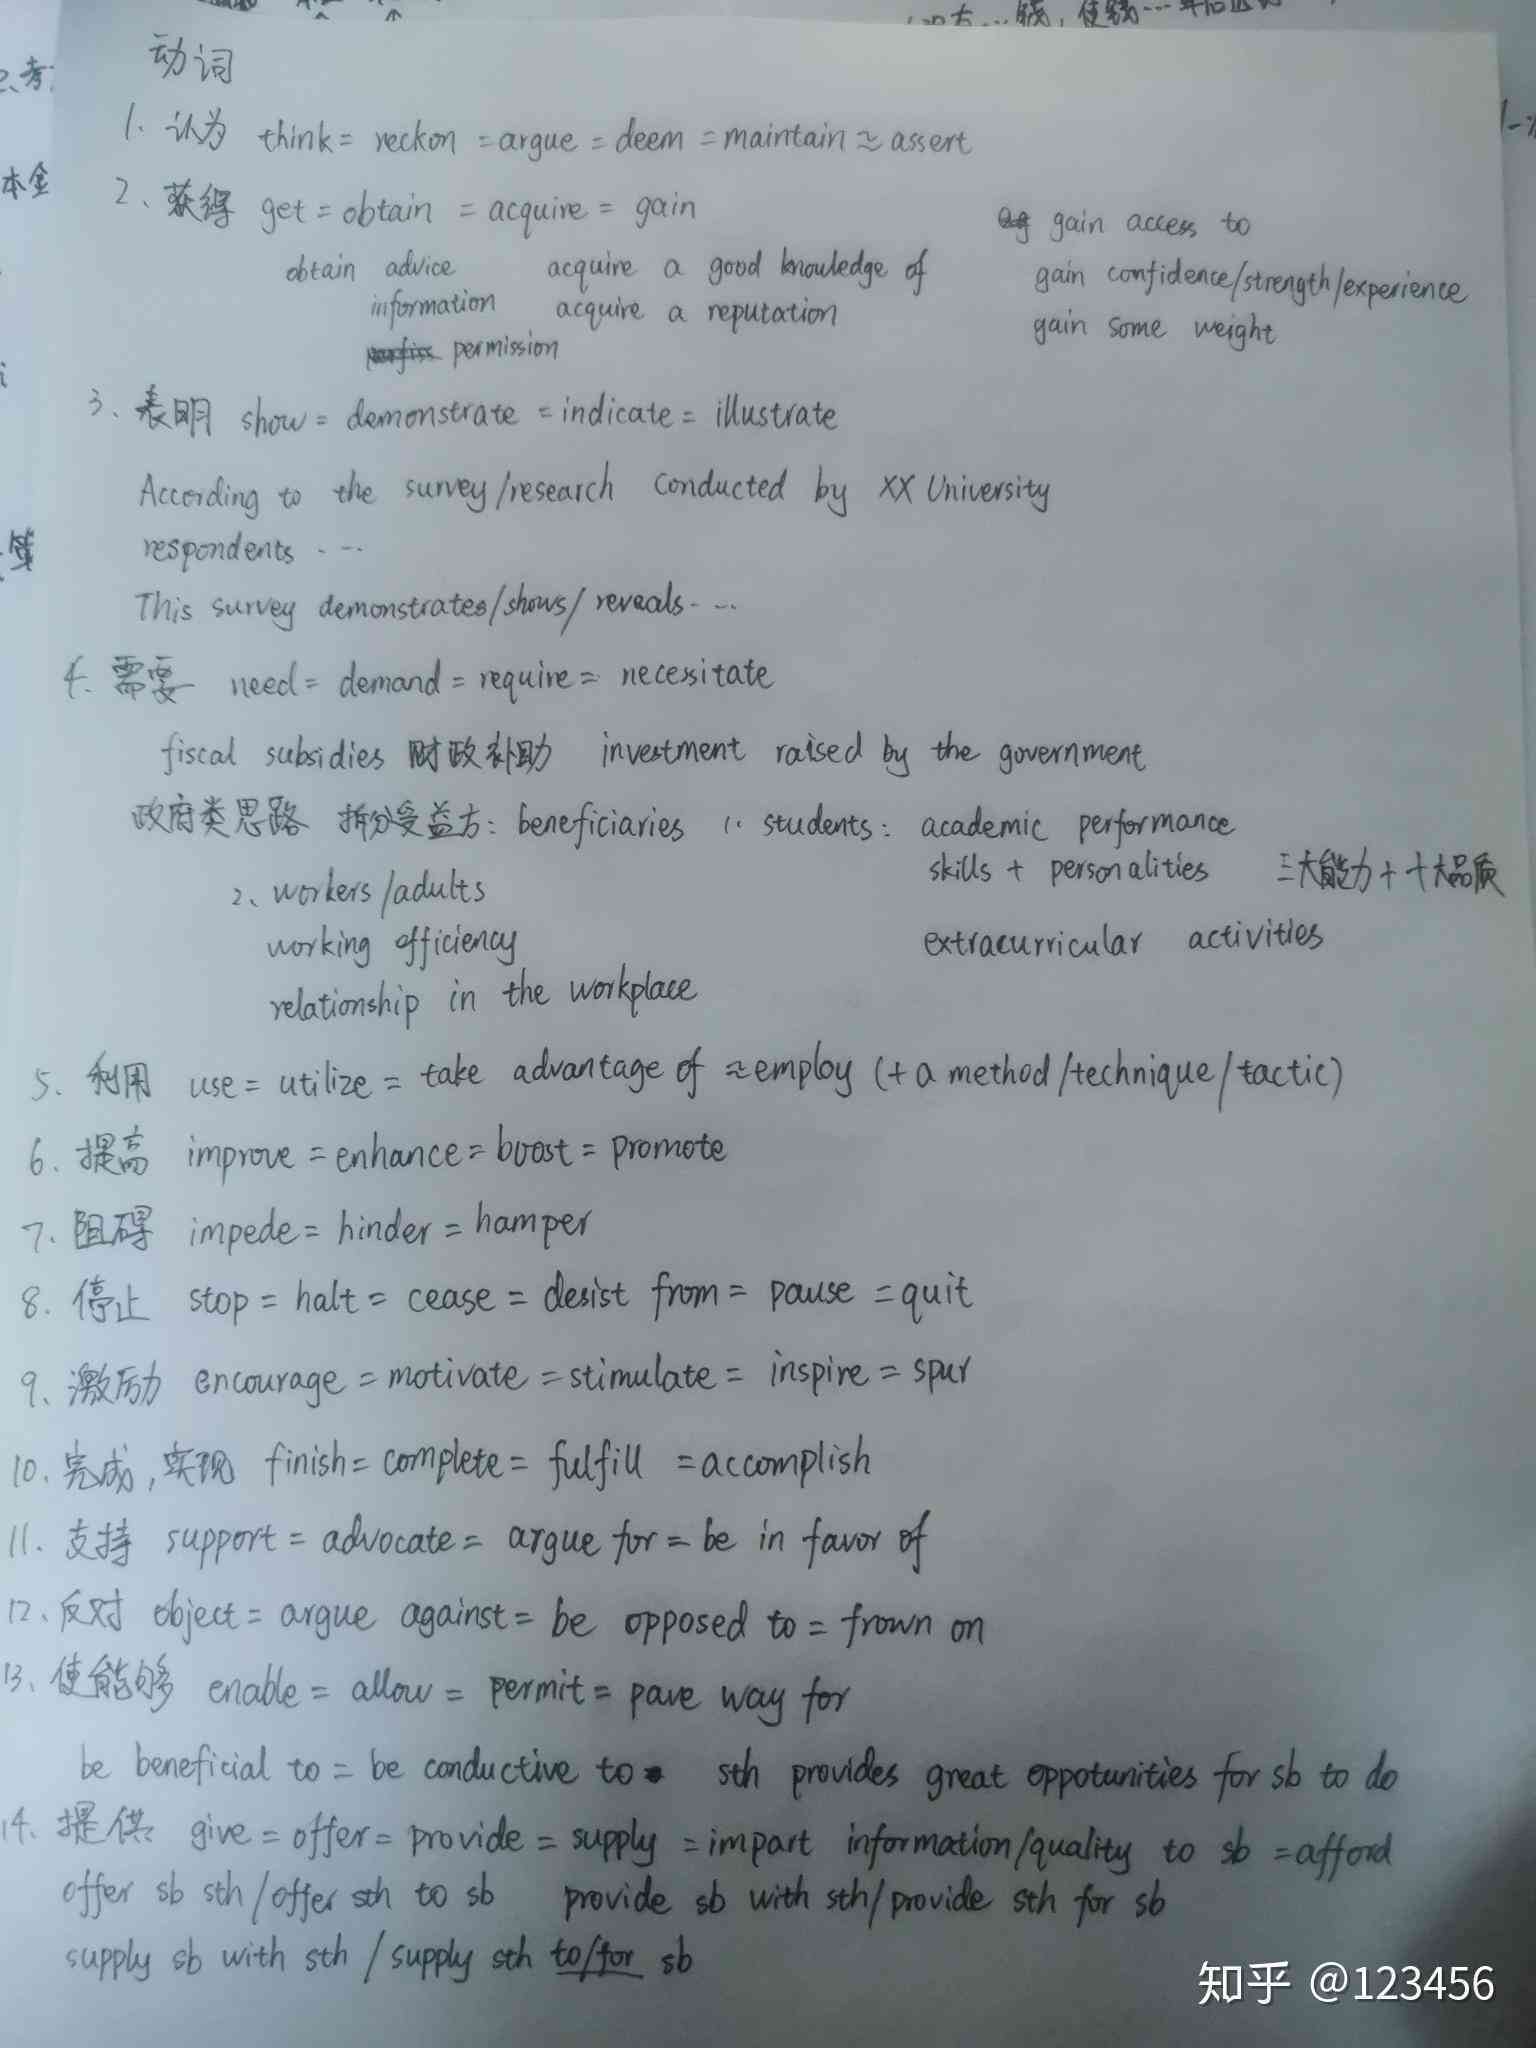 动词
1. 认为 think = reckon = argue = deem = maintain ≈ assert
2、获得 get = obtain = acquire = gain
gain access to
obtain advice acquire a good knowledge of gain confidence/strength/experience
information acquire a reputation gain some weight
permission
3、表明 show = demonstrate = indicate = illustrate
According to the survey/research conducted by XX University
respondents ...
This survey demonstrates/shows/reveals ...
4. 需要 need = demand = require = necessitate
fiscal subsidies 财政补助 investment raised by the government
政府类思路 拆分受益方: beneficiaries 1. students: academic performance
skills + personalities 三大能力+十大品质
2、workers/adults
working efficiency extracurricular activities
relationship in the workplace
5. 利用 use = utilize = take advantage of ≈ employ (+ a method/technique/tactic)
6. 提高 improve = enhance = boost = promote
7. 阻碍 impede = hinder = hamper
8. 停止 stop = halt = cease = desist from = pause = quit
9. 激励 encourage = motivate = stimulate = inspire = spur
10. 完成,实现 finish = complete = fulfill = accomplish
11. 支持 support = advocate = argue for = be in favor of
12、反对 object = argue against = be opposed to = frown on
13、使能够 enable = allow = permit = pave way for
be beneficial to = be conductive to sth provides great oppotunities for sb to do
14. 提供 give = offer = provide = supply = impart information/quality to sb = afford
offer sb sth/offer sth to sb provide sb with sth/provide sth for sb
supply sb with sth / supply sth to/for sb
知乎 @123456